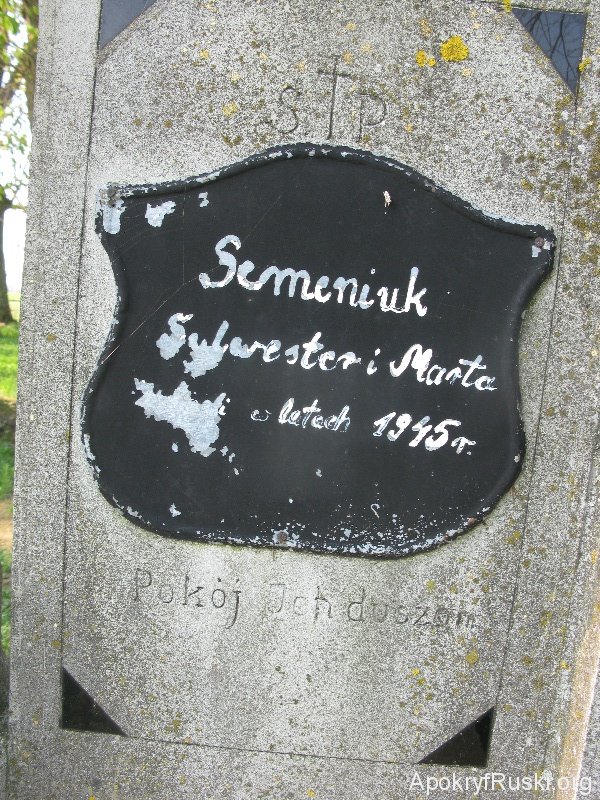 STP
Semeniuk
Sylwester i Marta
w latach 1945 r.
Pokój Ich duszom
ApokryfRuski.org